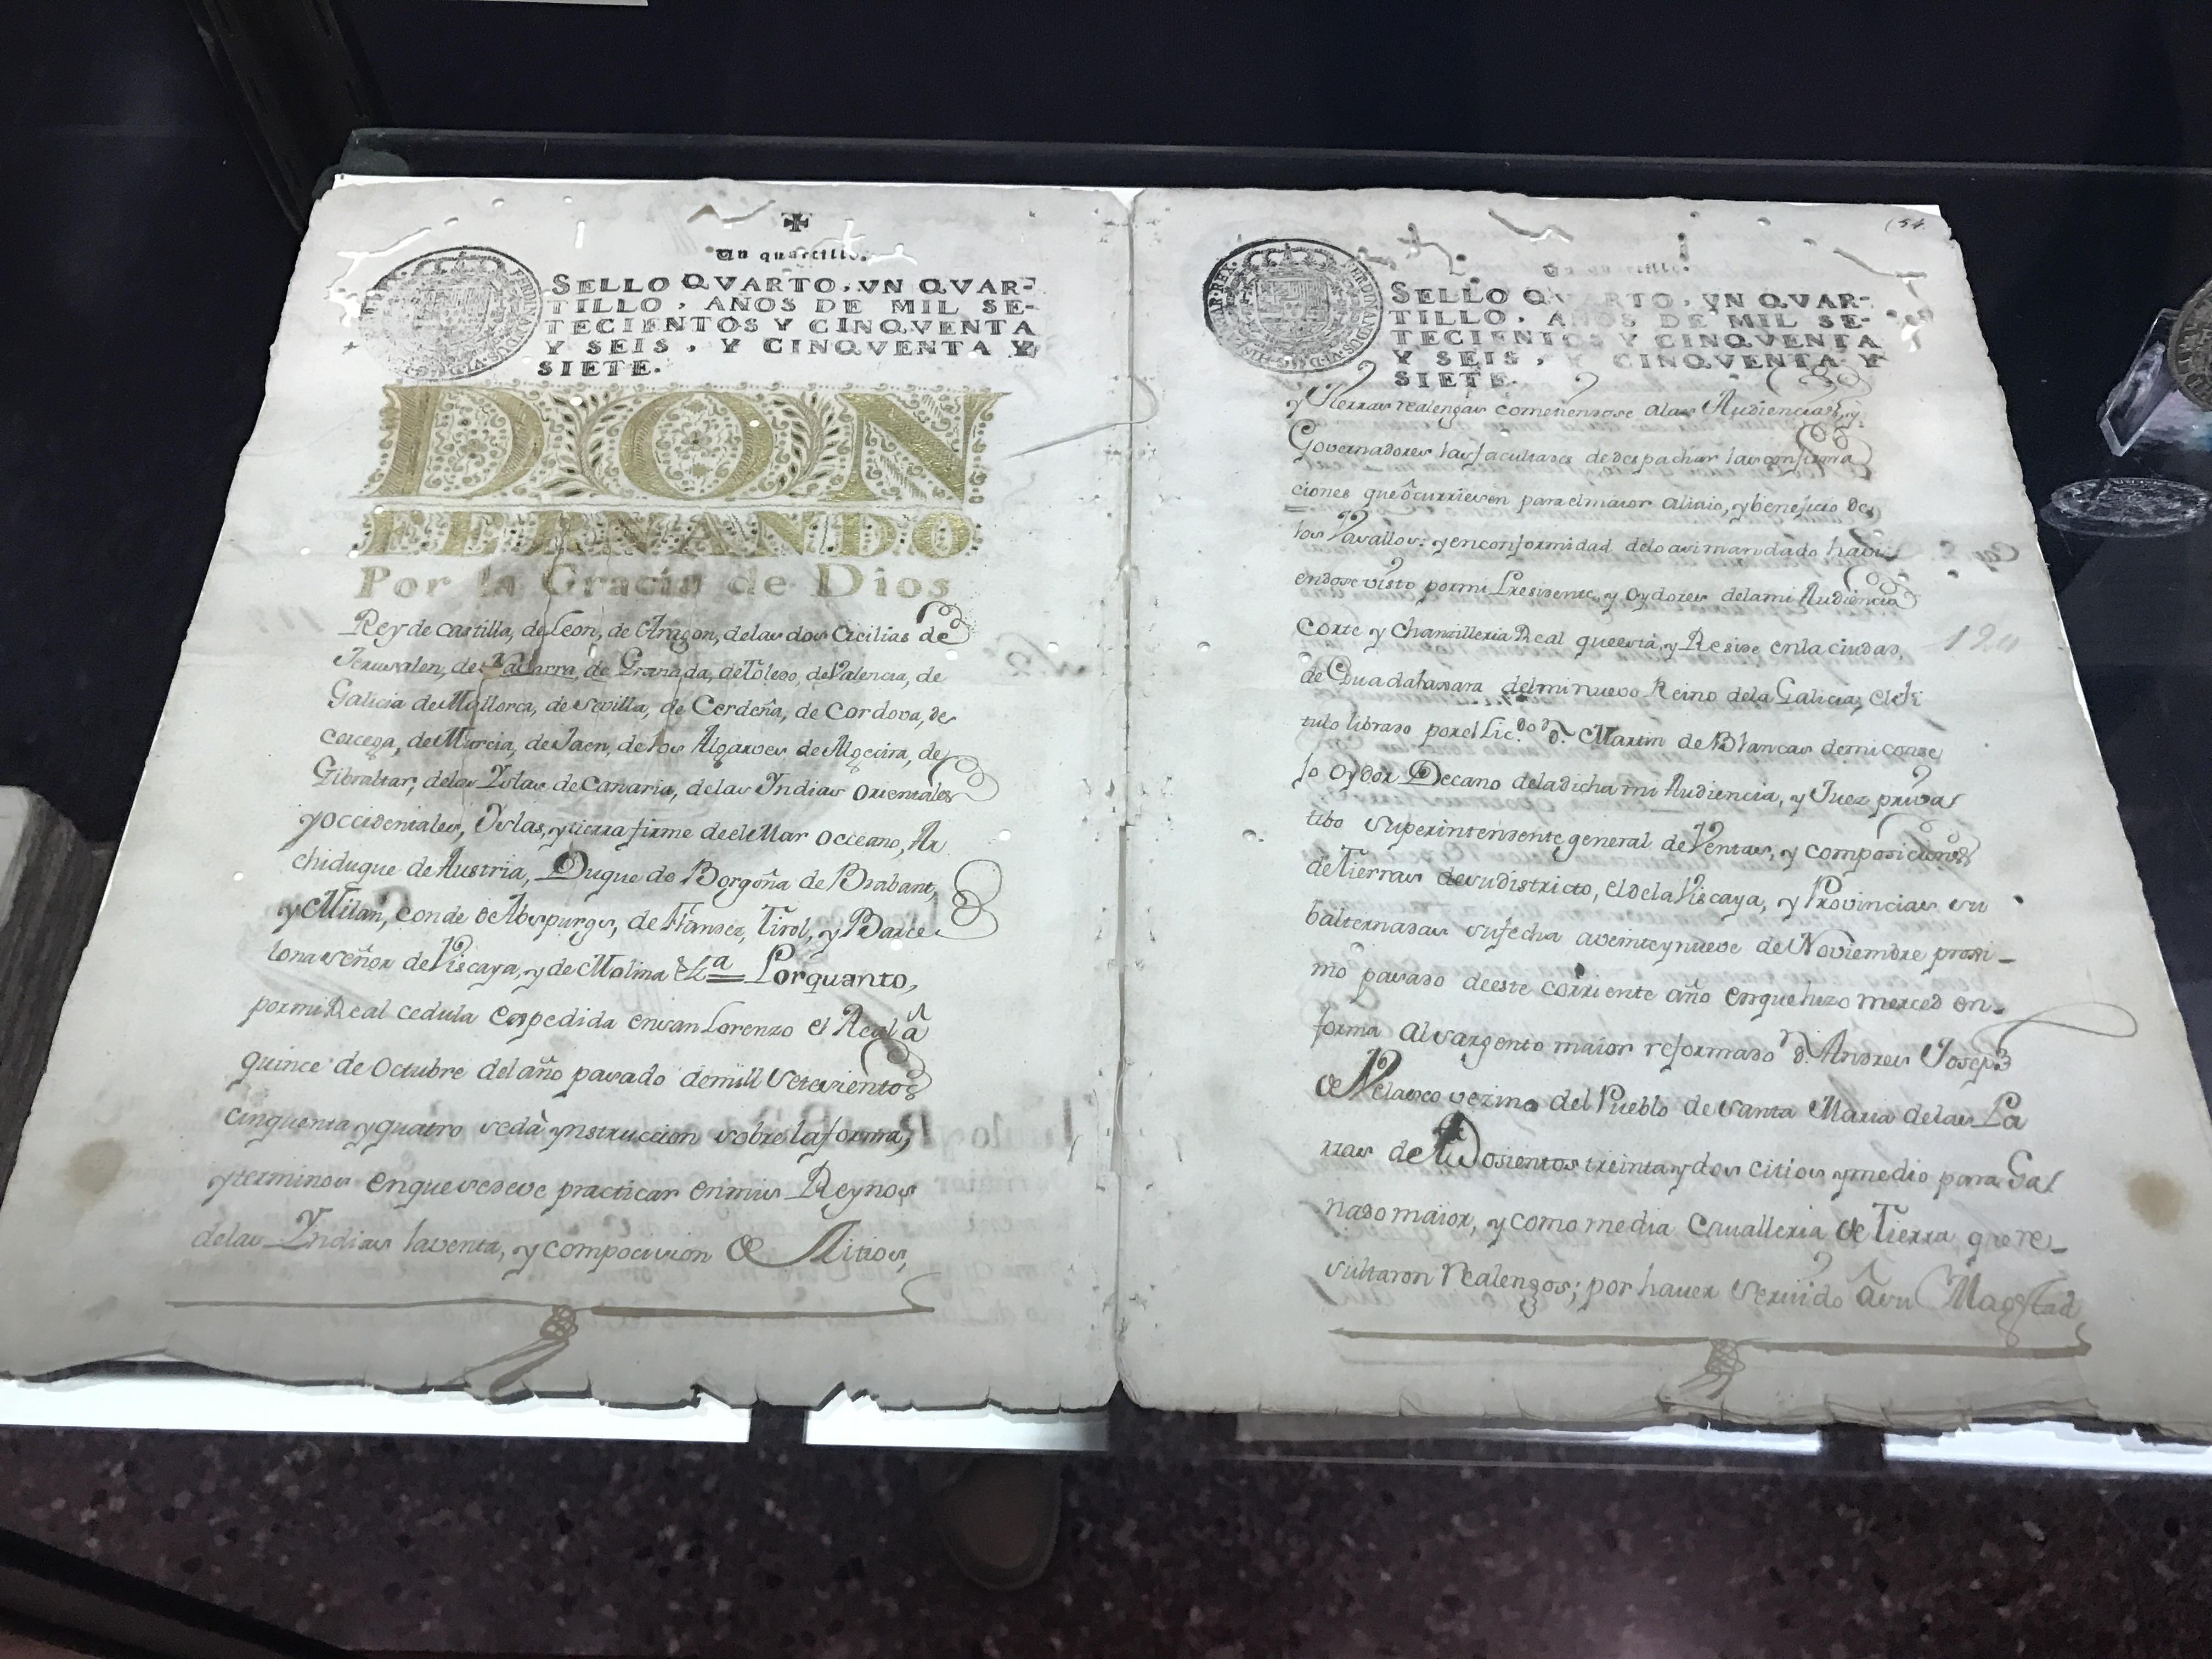 Un quartillo.
SELLO QVARTO, VN QVAR-
TILLO, AÑOS DE MIL SE-
TECIENTOS Y CINQVENTA
Y SEIS, Y CINQVENTA Y
SIETE.
DON
FERNANDO
Por la Gracia de Dios
Rey de Castilla, de Leon, de Aragon, de las dos Cicilias de
Jerusalen, de Navarra, de Granada, de Toledo, de Valencia, de
Galicia de Mallorca, de Sevilla, de Cerdeña, de Cordova, de
Corcega, de Murcia, de Jaen, de los Algarves de Algecira, de
Gibraltar, de las Yslas de Canaria, de las Yndias Orientales
y occidentales, Yslas, y tierra firme de el Mar Occeano, Ar
chiduque de Austria, Duque de Borgoña de Brabant,
y Milan, conde de Abspurgs, de Flandez, Tirol, y Barce
lona señor de Viscaya, y de Molina &ª Porquanto,
por mi Real cedula expedida en San Lorenzo el Real â
quince de Octubre del año pasado de mill Setesientos
cinquenta y quatro se dà ynstruccion sobre la forma,
y terminos en que se deve practicar en mis Reynos
de las Yndias la venta, y composicion de Sitios,
(54
Un quartillo.
SELLO QVARTO, VN QVAR-
TILLO, AÑOS DE MIL SE-
TECIENTOS Y CINQVENTA
Y SEIS, Y CINQVENTA Y
SIETE.
y Tierras realengas cometiendose a las Audiencias, y
Governadores las facultades de despachar las confirma
ciones que ôcurriesen para el maior alivio, y beneficio de
los Vasallos: y en conformidad de lo asi mandado havi
endose visto por mi Presidente, y Oydores de la mi Audiencia
Corte y Chanzilleria Real que està, y Reside en la ciudad,
de Guadalaxara del mi nuevo Reino de la Galicia, el ti
tulo librado por el Lic.do d.n Martin de Blancas de mi conse
jo Oydor Decano de la dicha mi Audiencia, y Juez priva
tibo Superintendente general de Ventas, y composiciones
de Tierras de su districto, el de la Viscaya, y Provincias su
balternadas su fecha a veinte y nueve de Noviembre proxi-
mo pasado de este corriente año en que hizo merced en
forma al Sargento maior reformado d.n Andres Joseph
de Velasco vezino del Pueblo de Santa Maria de las Pa
rras de Dosientos treinta y dos citios y medio para Ga
nado maior, y como media Cavalleria de Tierra que re-
sultaron Realengos; por haver Servido â su Magestad